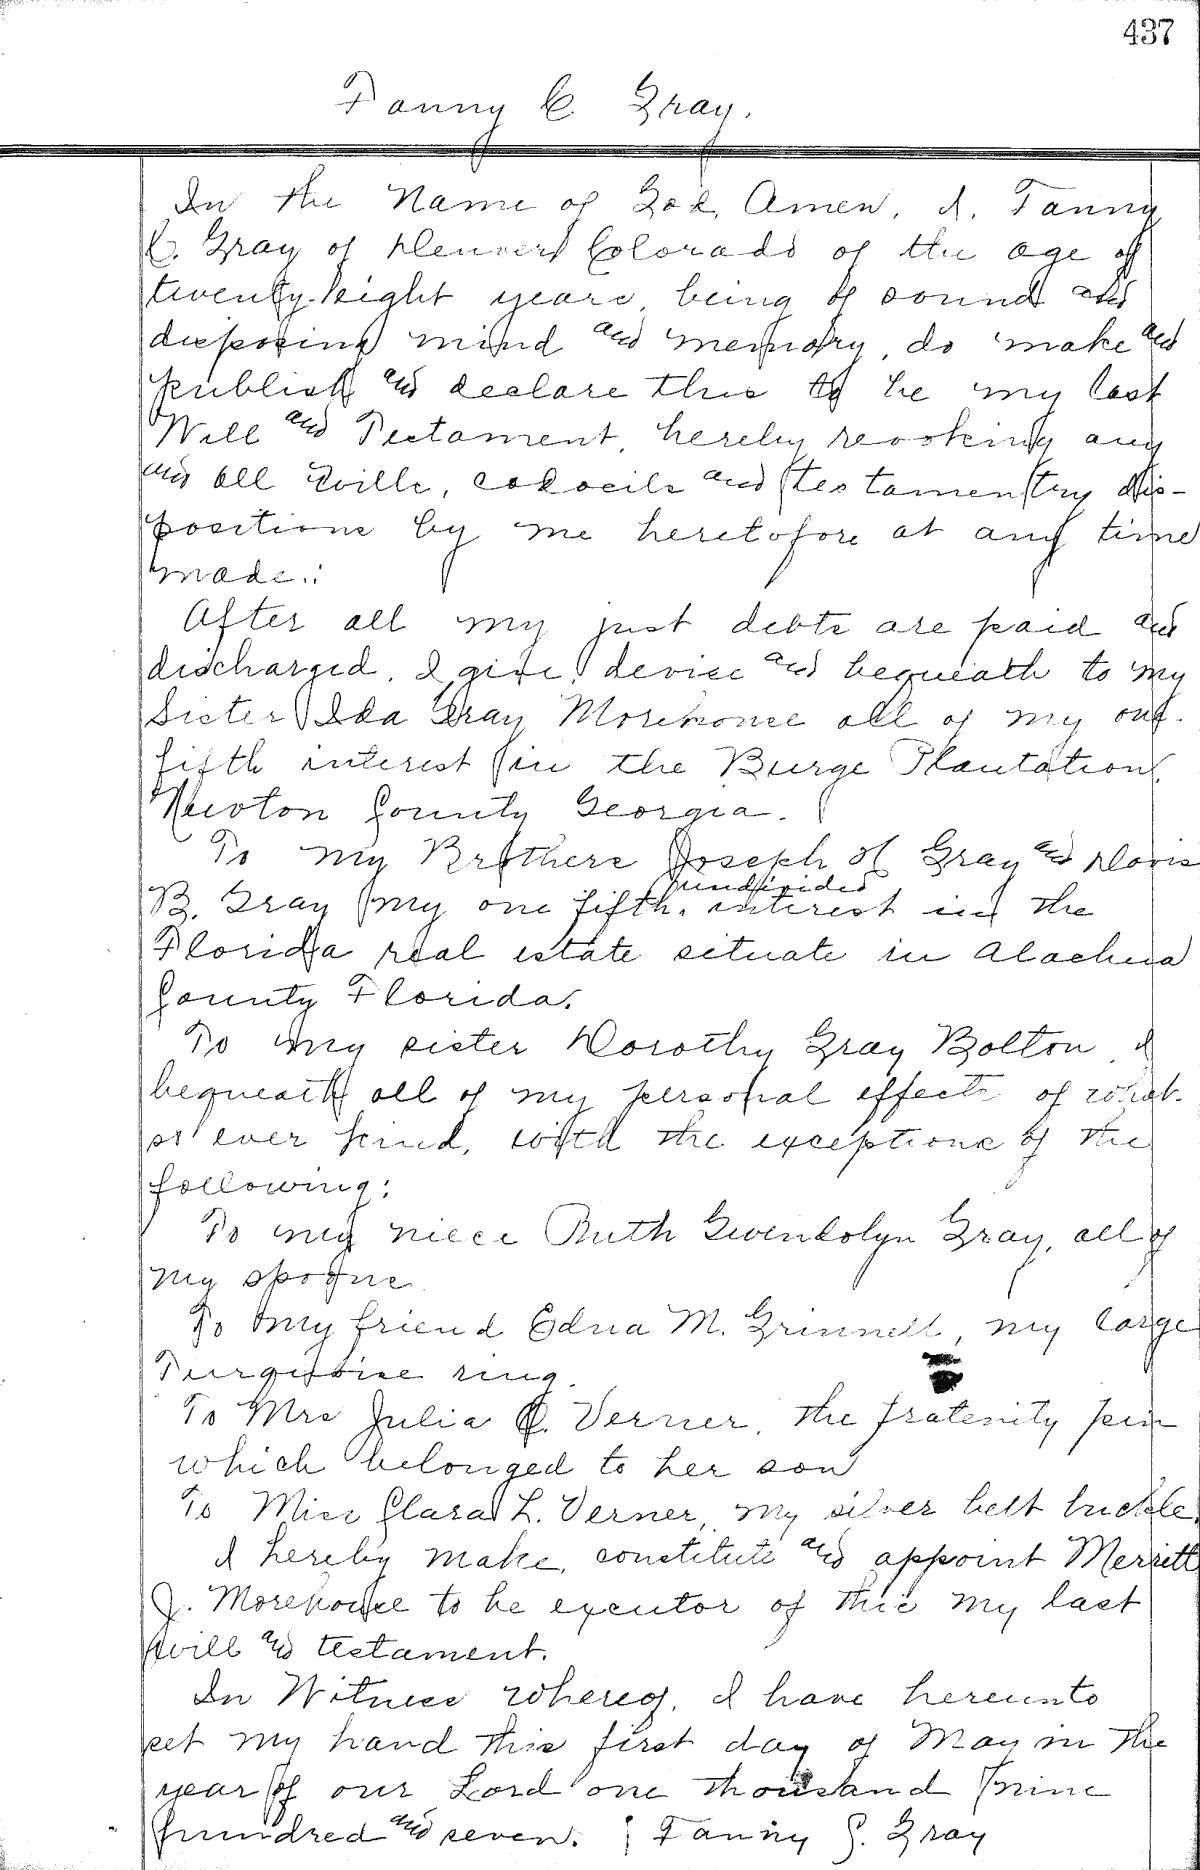 437
Fanny C. Gray.
In the Name of God, Amen, I, Fanny
C. Gray of Denver Colorado of the age of
twenty-eight years, being of sound and
disposing mind and memory, do make and
publish and declare this to be my last
Will and Testament, hereby revoking any
and all wills, codocils and testamentry dis-
positions by me heretofore at any time
made.:
After all my just debts are paid and
discharged, I give, devise and bequeath to my
Sister Ida Gray Morehouse all of my one-
fifth interest in the Burge Plantation,
Newton County Georgia.
To my Brothers Joseph H Gray and Davis
undivided
B. Gray my one fifth, interest in the
Florida real estate situate in Alachua
County Florida.
To my sister Dorothy Gray Bolton, I
bequeath all of my personal effects of what-
so ever kind, with the exceptions of the
following:
To my niece Ruth Gwendolyn Gray, all of
my spoons
To my friend Edna M. Grinnell, my large
Turquoise ring.
To Mrs Julia C. Verner, the fratenity pin
which belonged to her son
To Miss Clara L. Verner, my silver belt buckle,
I hereby make, constitute and appoint Merritt
J. Morehouse to be executor of this my last
will and testament.
In Witness whereof, I have hereunto
set my hand this first day of May in the
year of our Lord one thousand nine
hundred and seven. Fanny C. Gray